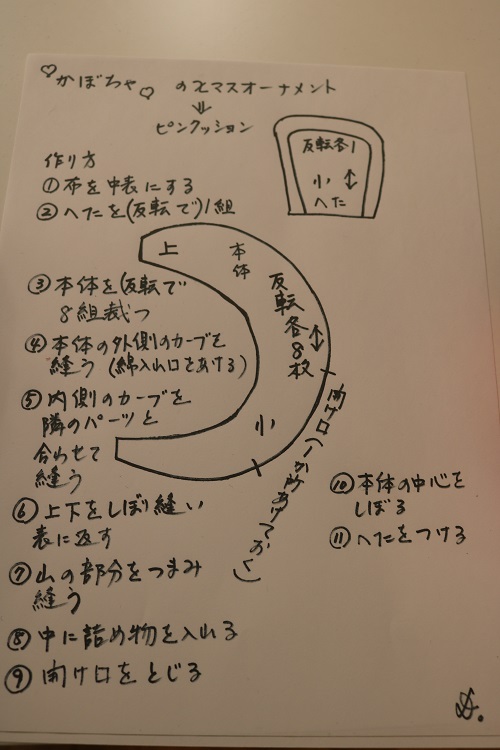 ♡かぼちゃ♡のXマスオーナメント
⇓
ピンクッション
反転各1
小
へた
作り方
①布を中表にする
②へたを(反転で)1組
上
本体
反転各8枚
小
開け口(一か所あけておく)
③本体を(反転で
8組裁つ
④本体の外側のカーブを
縫う(綿入山口をあける)
⑤内側のカーブを
隣のパーツと
合わせて
縫う
⑥上下をしぼり縫い
表に返す
⑦山の部分をつまみ
縫う
⑧中に詰め物を入れる
⑨開け口をとじる
⑩本体の中心を
しぼる
⑪へたをつける